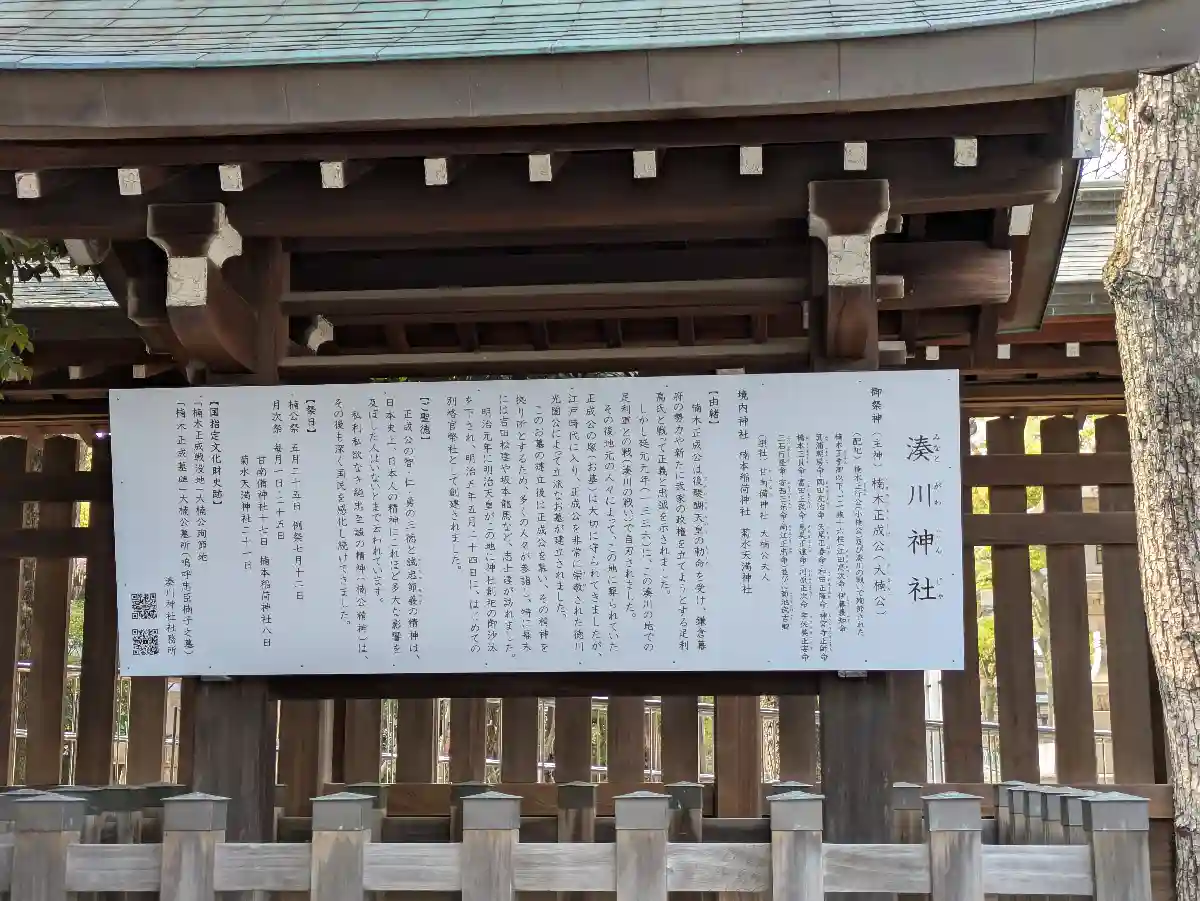 湊川神社
みなとがわじんじゃ
御祭神（主神）楠木正成公（大楠公）
（配祀）楠木正行公（小楠公）及び湊川の戦いで殉節された
楠木正季卿以下
境内神社　楠本稲荷神社　菊水天満神社
（摂社）甘南備神社　大楠公夫人
【由緒】
楠木正成公は後醍醐天皇の勅命を受け、鎌倉幕
府の勢力や新たに武家の政権を立てようとする足利
高氏と戦って正義と忠誠を示されました。
しかし延元元年（一三三六）に、この湊川の地での
足利軍との戦（湊川の戦い）で自刃されました。
その後地元の人々によって、この地に葬られていた
正成公の塚（お墓）は大切に守られてきましたが、
江戸時代に入り、正成公を非常に崇敬された徳川
光圀公によって立派なお墓が建立されました。
このお墓の建立後は正成公を慕い、その精神を
拠り所とするため、多くの人々が参詣し、特に幕末
には吉田松陰や坂本龍馬など、志士達が訪れました。
明治元年に明治天皇がこの地に神社創祀の御沙汰
を下され、明治五年五月二十四日に、はじめての
別格官幣社として創建されました。
【ご聖徳】
正成公の智・仁・勇の三徳と誠忠節義の精神は、
日本史上、日本人の精神にこれほど多大な影響を
及ぼした人はいないとまで云われています。
私利私欲なき絶忠至誠の精神（楠公精神）は、
その後も深く国民を感化し続けてきました。
【祭日】
楠公祭　五月二十五日　例祭七月十二日
月次祭　毎月一日・二十五日
甘南備神社十七日　楠本稲荷神社八日
菊水天満神社二十一日
【国指定文化財史跡】
「楠木正成戦没地」大楠公殉節地
「楠木正成墓碑」大楠公墓所（嗚呼忠臣楠子之墓）
湊川神社社務所